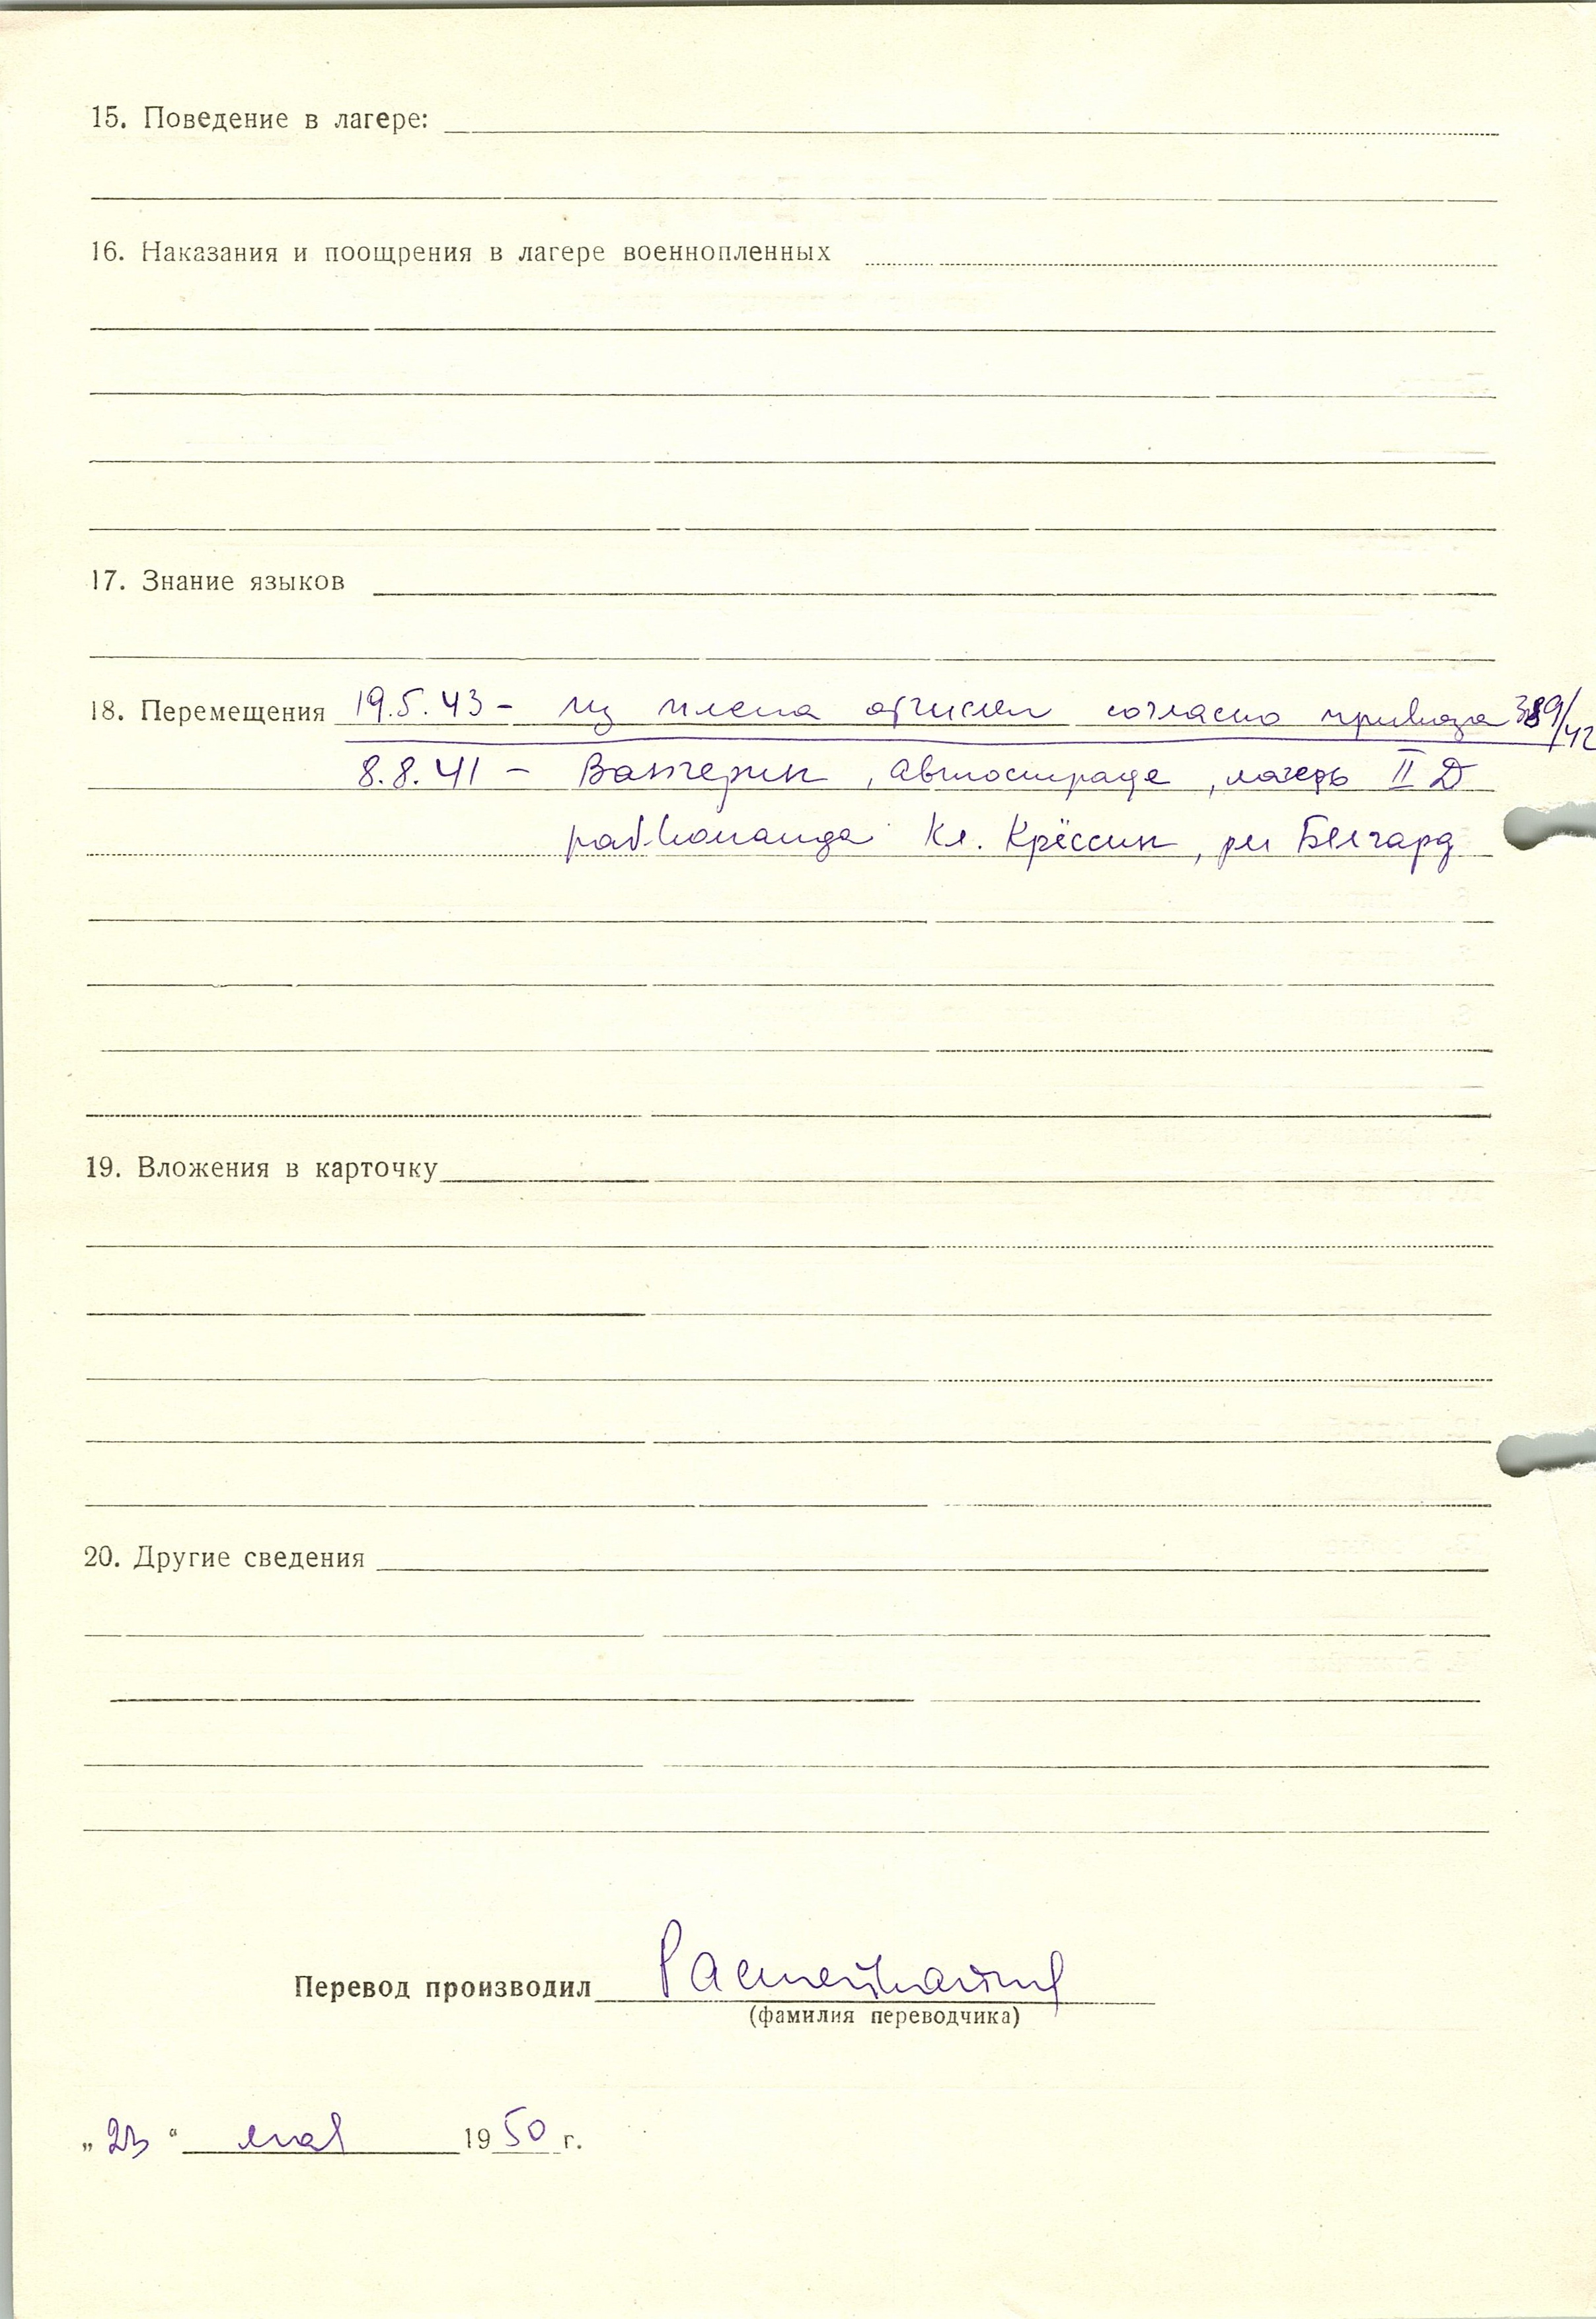 15. Поведение в лагере:
16. Наказания и поощрения в лагере военнопленных
17. Знание языков
18. Перемещения 19.5.43 - из плена отчислен согласно приказа 389/42
8.8.41 - Вангерин, Автостраде, лагерь II Д
раб.команда Кл. Крёссин, рн Белгард
19. Вложения в карточку
20. Другие сведения
Перевод производил
(фамилия переводчика)
„23“ мая 1950 г.